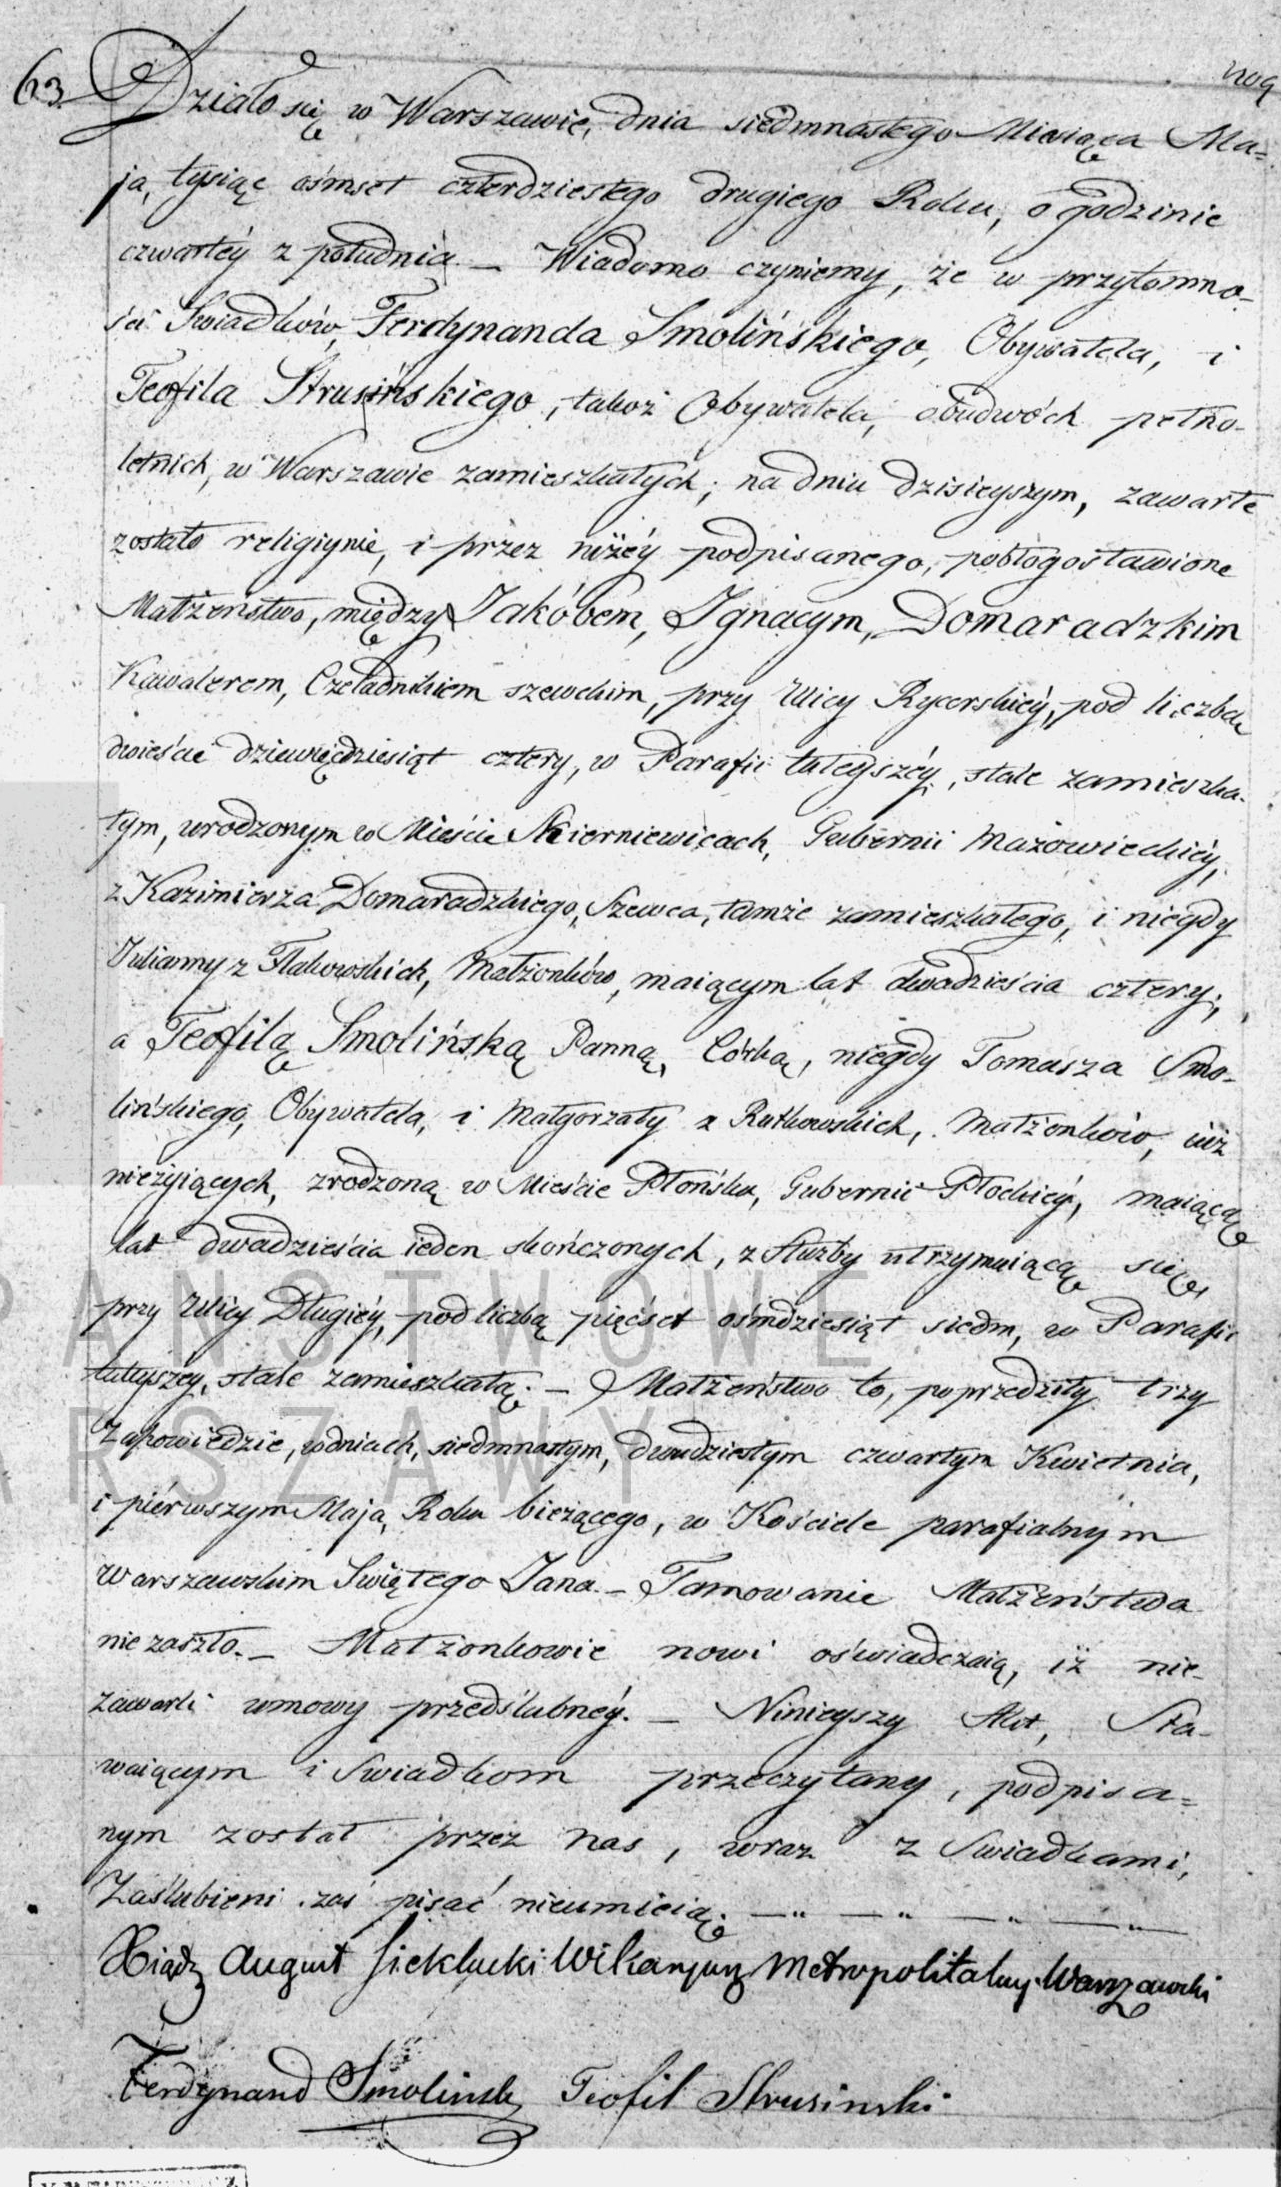 63 Działo się w Warszawie, dnia siedmnastego Miesiąca Ma=
ja, tysiąc ośmset czterdziestego drugiego Roku, o godzinie
czwartéy z południa. – Wiadomo czyniemy, że w przytomno-
ści Swiadków, Ferdynanda Smolińskiego, Obywatela, i
Teofila Strusińskiego, takoż Obywatela, obudwóch pełno-
letnich, w Warszawie zamieszkałych; na dniu dzisieyszym, zawarte
zostało religiynie, i przez niżéy podpisanego, pobłogosławione
Małżeństwo, między Jakóbem, Ignacym, Domaradzkim
Kawalerem, Czeladnikiem szewckim, przy Ulicy Rycerskiéy, pod liczbą
dwieście dziewięćdziesiąt cztery, w Parafii tuteyszéy, stale zamieszka-
łym, urodzonym w Mieście Skierniewicach, Gubernii Mazowieckiéy,
z Kazimierza Domaradzkiego, Szewca, tamże zamieszkałego, i niegdy
Julianny z Flakowskich, Małżonków, maiącym lat dwadzieścia cztery;
a Teofilą Smolińską Panną, Córką, niegdy Tomasza Smo-
lińskiego, Obywatela, i Małgorzaty z Rutkowskich, Małżonków, iuż
nieżyiących, zrodzoną w Mieście Płońsku, Gubernii Płockiéy, maiącą
lat dwadzieścia ieden skończonych, z Służby utrzymuiącą się,
przy Ulicy Długiéy, pod liczbą pięćset ośmdziesiąt siedm, w Parafii
tuteyszey, stale zamieszkałą. – Małżeństwo to, poprzedziły trzy
Zapowiedzie, w dniach, siedmnastym, dwudziestym czwartym Kwietnia,
i piérwszym Maja, Roku bieżącego, w Kościele parafialnym
Warszawskim Świętego Jana. – Tamowanie Małżeństwa
nie zaszło. – Małżonkowie nowi oświadczaią, iż nie-
zawarli umowy przedślubnéy. – Ninieyszy Akt, Sta-
waiącym i Swiadkom przeczytany, podpisa=
nym został przez nas, wraz z Swiadkami,
Zaślubieni zaś pisać nieumieią. – „ – „ – „ – „ –
Xiądz August Siekłucki Wikaryusz Metropolitalny Warszawski
Ferdynand Smolinski Teofil Strusinski
PAŃSTWOWE
ARSZAWY